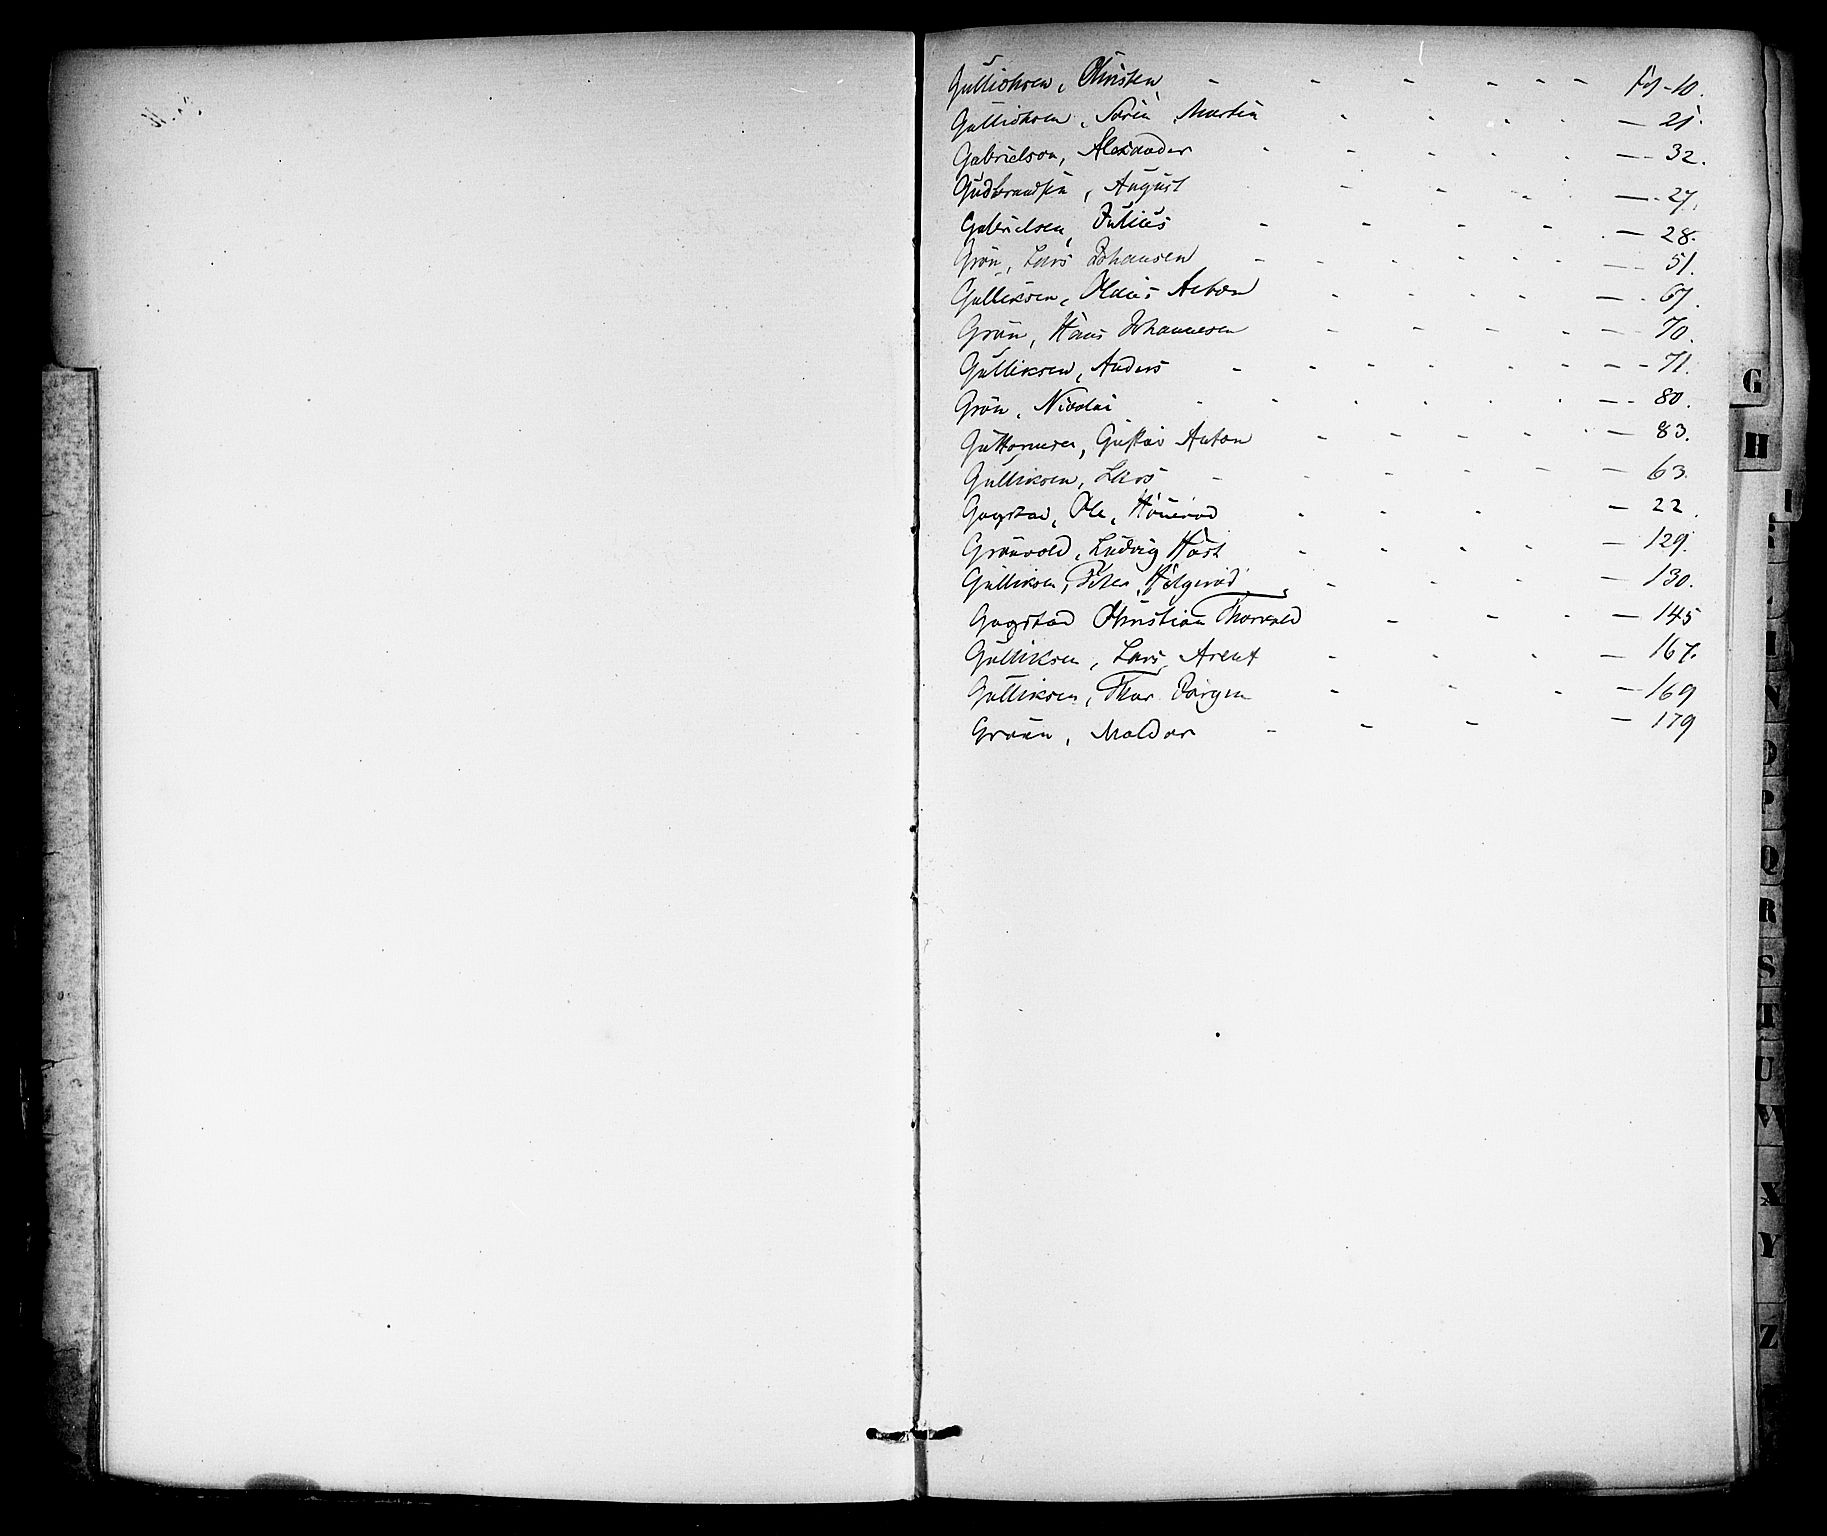 Gullichsen, Christen - - - - - - Fol - 10.
Gullichsen, Sörin Martin - - - - — 21.
Gabrielson, Alexander - - - - - — 32.
Gudbrandsen, August - - - — 27.
Gabrielsen, Julius - - - - — 28.
Grön, Lars Johansen - - - - - - — 51.
Gulliksen, Olaus Anton - - - - — 67.
Grön, Hans Johannesen - - - - — 70.
Gulliksen, Anders - - - - - - — 71.
Grön, Nicolai - - - - - - — 80.
Guttormsen, Gustav Anton - - - - - — 83.
Gulliksen, Lars - - - - - — 63.
Gogstad, Ole, - - - — 22.
Grönvold, Ludvig Höst - - - - — 129.
Gulliksen, Peter, - - - — 130.
Gogstad Christian Thorvald - - - — 145
Gulliksen, Lars Arent - - - — 167.
Gulliksen, Thor Jörgen - - - — 169
Gröen, Maldor - - - — 179
G
H
I
N
O
P
Q
R
S
T
U
W
X
Y
Z